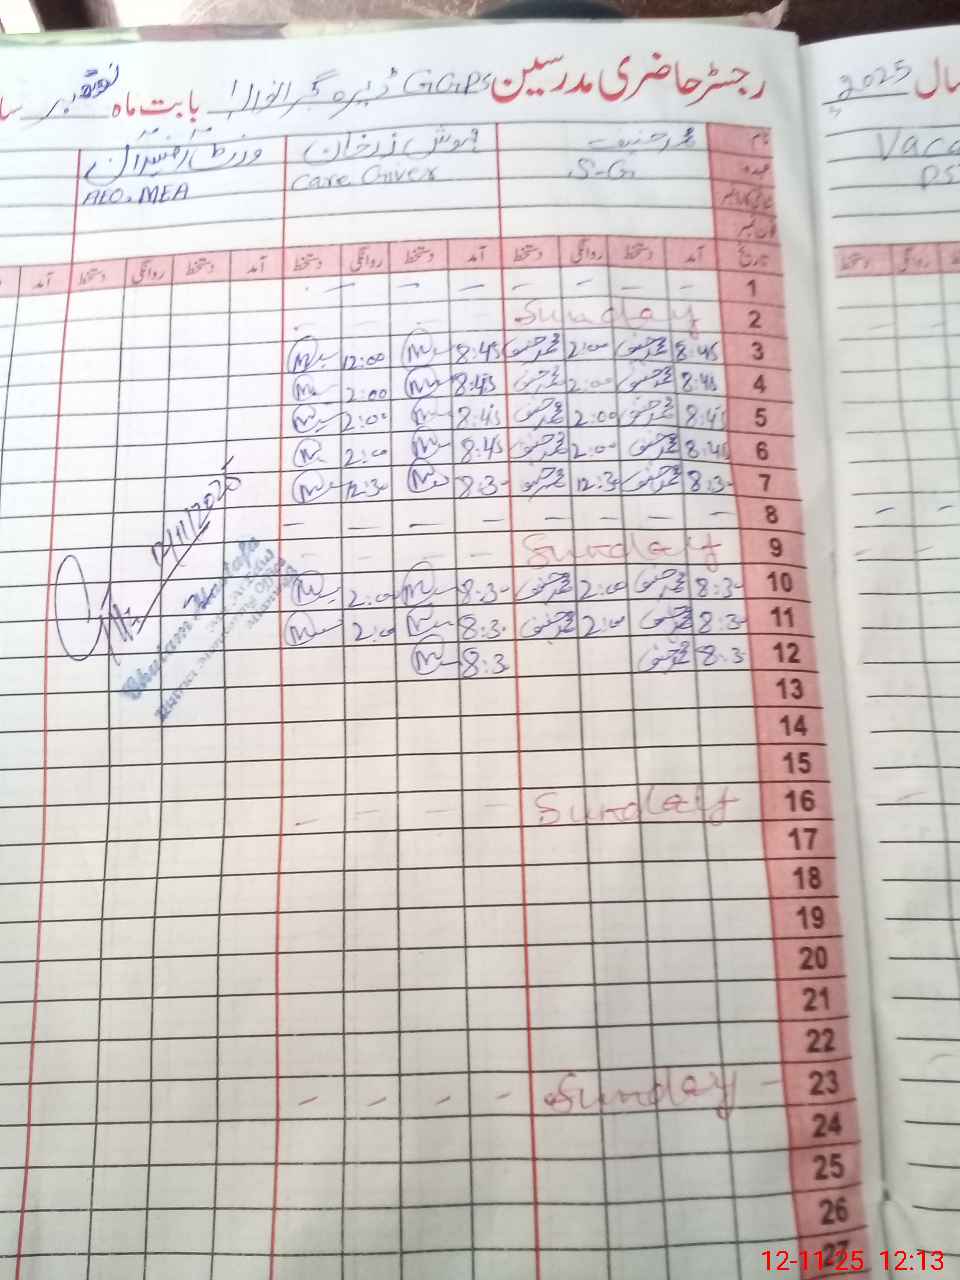 رجسٹر حاضری مدرسین GGPS ڈیرہ گجرانوالہ بابت ماہ نومبر سال 2025
نام محمد حنیف ہوش زرخان وزٹ آفیسران
عہدہ S-G. Care Giver AEO, MEA
Vaca
تاریخ آمد دستخط روانگی دستخط آمد دستخط روانگی دستخط آمد دستخط روانگی دستخط آمد
1 - - - - - - -
2 Sunday
3 8:45 محمد حنیف 2:00 محمد حنیف 8:45 12:00
4 8:45 محمد حنیف 2:00 محمد حنیف 8:45 2:00
5 8:45 محمد حنیف 2:00 محمد حنیف 8:45 2:00
6 8:45 محمد حنیف 2:00 محمد حنیف 8:45 2:00
7 8:30 محمد حنیف 12:30 محمد حنیف 8:30 12:30
8 - - - - - - - -
9 Sunday - - - -
10 8:30 محمد حنیف 2:00 محمد حنیف 8:30 2:00
11 8:30 محمد حنیف 2:00 محمد حنیف 8:30 2:00
12 8:3 محمد حنیف 8:3
13
14
15
16 Sunday - - - -
17
18
19
20
21
22
23 - Sunday - - - -
24
25
26
27
Ghulam Mustafa
12-11-25 12:13